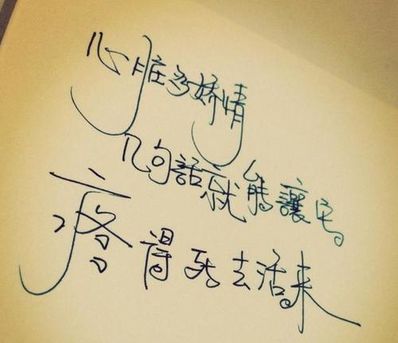 心脏多矫情
几句話就能讓它。
疼得死去活来